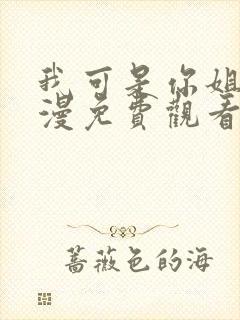 我可是你姐
漫免費觀看
蔷薇色的海